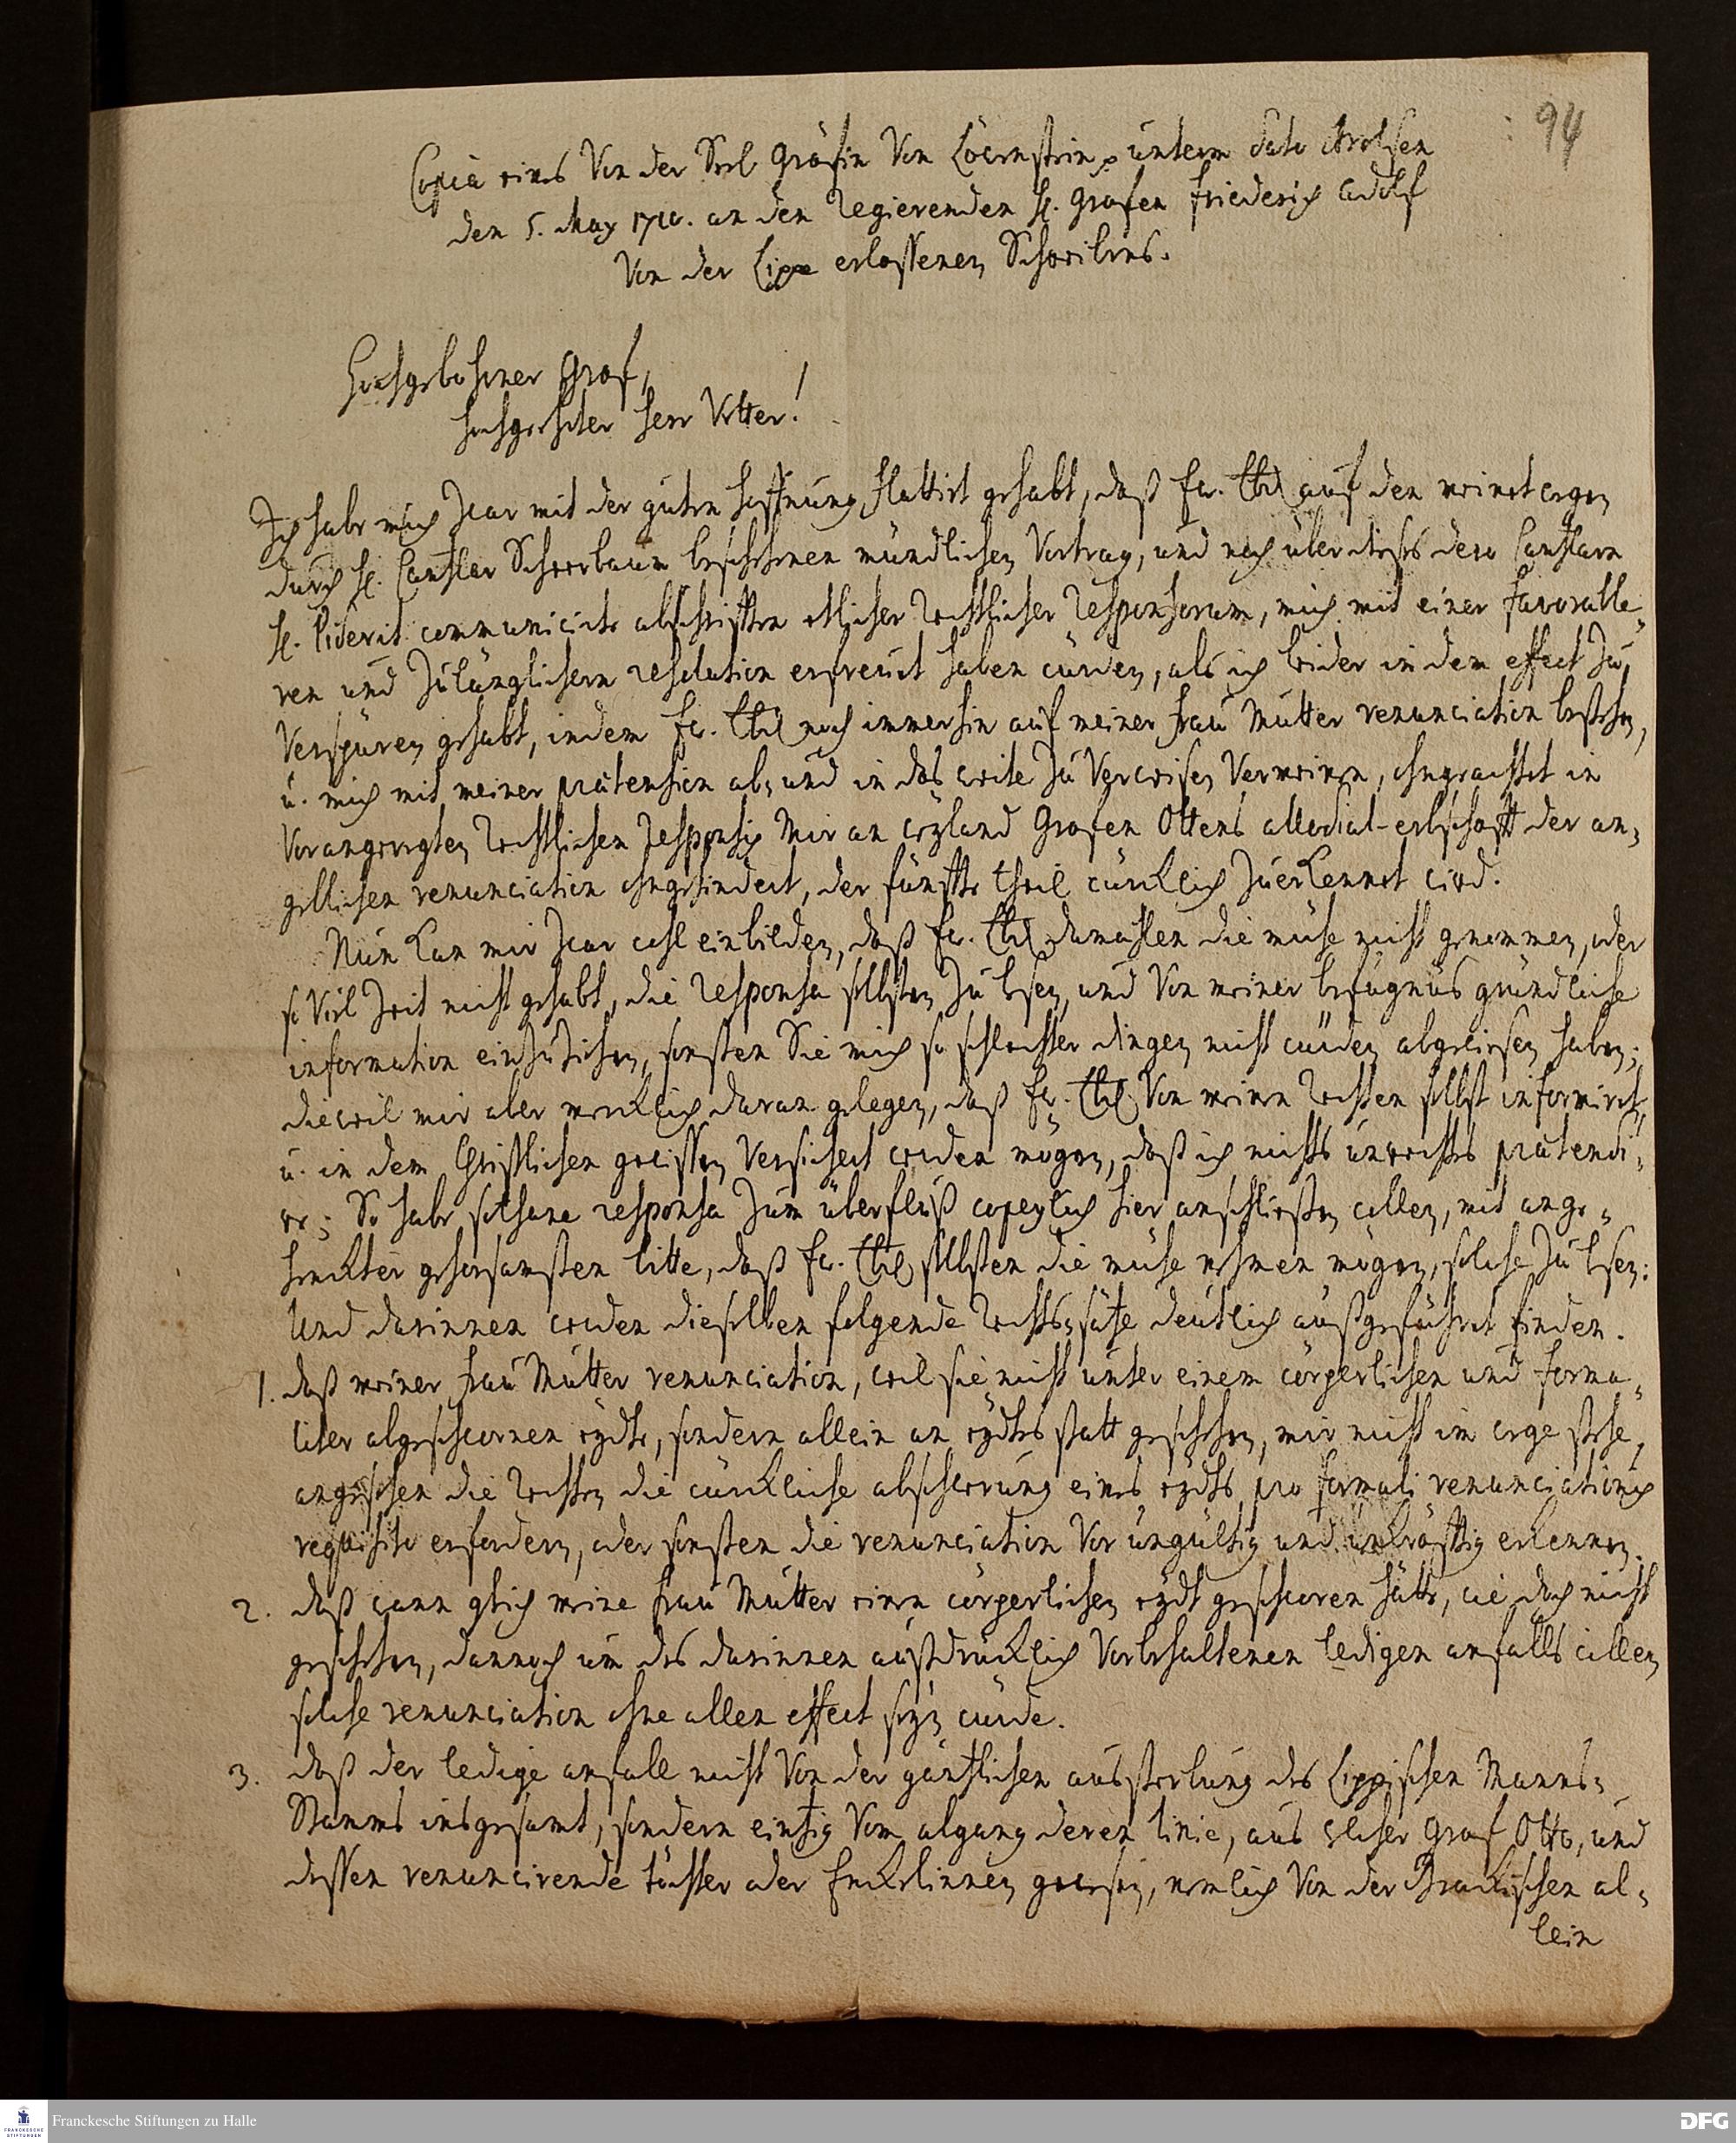 94
Copia eines Von der Seel Gräfin Von Löwenstein p unterm dato Arolsen
den 5. May 1710. an den Regierenden H. Grafen Friederich Adolf
Von der Lippe erlassenen Schreibens.
Hochgebohrner Graf,
hochgeehrter herr Vetter!
Ich habe mich zwar mit der guten hoffnung flattirt gehabt, daß Ew. Lbd auf den meinetwegen
durch H. Cantzler Scheerbaum beschehenen mündlichen Vortrag, und nach über dieses dero Cantzlarn
H. Piderit communicirte abschrifften etlicher rechtlicher Responsorum, mich mit einer favorable„
ren und zulänglichern resolution erfreut haben würden, als ich leider in dem effect zu
Verspüren gehabt, indem Ew. Lbd noch immerhin auf meiner frau Mutter renunciation bestehen,
u. mich mit meiner prätension ab, und in das weite zu Verweisen Vermeinen, ohngeachtet in
Vorangeregten rechtlichen Responsis Mir an weyland Grafen Ottens allodial-erbschafft der an„
geblichen renunciation ohngehindert, der fünffte theil würcklich zuerkennet wird.
Nun kan mir zwar wohl einbilden, daß Ew. Lbd damahlen die mühe nicht genommen, oder
so Viel Zeit nicht gehabt, die Responsa selbsten zu lesen, und Von meiner befugnüs gründliche
information einzuziehen, sonsten Sie mich so schlechter dingen nicht würden abgewiesen haben;
dieweil mir aber mercklich daran gelegen, daß Ew. Lbd Von meinen Rechten selbst informiret,
u. in dem Christlichen gewissen Versichert werden mögen, daß ich nichts unrechtes prätendi„
re; So habe sothane responsa zum überfluß copeylich hier anschließen wollen, mit ange„
henckter gehorsamsten bitte, daß Ew. Lbd selbsten die mühe nehmen mögen, solche zu lesen:
Und darinnen werden dieselben folgende rechts,sätze deutlich außgeführet finden.
1. daß meiner frau Mutter renunciation, weil sie nicht unter einem cörperlichen und forma„
liter abgeschwornen eydte, sondern allein an eydtes statt geschehen, mir nicht im wege stehe,
angesehen die Rechten die würckliche abschwerung eines eydts pro formali renunciationis
requisito erfordern, oder sonsten die renunciation Vor ungültig und unkräfftig erkennen.
2. daß wann gleich meine frau Mutter einen cörperlichen eydt geschworen hätte, wie doch nicht
geschehen, dannoch um des darinnen außdrücklich Vorbehaltenen ledigen anfalls willen,
solche renunciation ohne allen effect seyn würde.
3. daß der ledige anfall nicht Von der gäntzlichen aussterbung des Lippischen Manns„
Stamms insgesamt, sondern eintzig Vom abgang deren linie, aus welcher Graf Otto, und
dessen renuncirende töchter oder Enckelinnen gewesen, nemlich Von der Brackischen al„
lein
Franckesche Stiftungen zu Halle
DFG